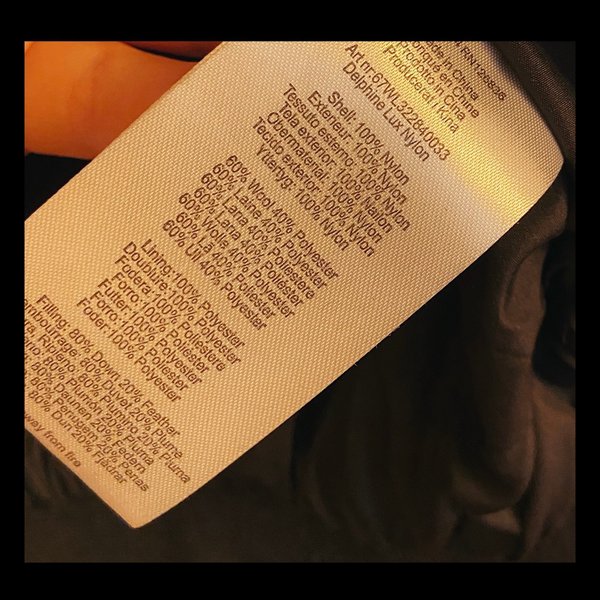 RN125536
Made in China
Produit en Chine
Prodotto in Cina
Producerat i Kina
Art nr: 67WL322840033
Delphine Lux Nylon
Shell: 100% Nylon
Exterieur: 100% Nylon
Tessuto esterno: 100% Nylon
Tela exterior: 100% Nailon
Obermaterial: 100% Nylon
Tecido exterior: 100% Nylon
Yttertyg: 100% Nylon
60% Wool 40% Polyester
60% Laine 40% Polyester
60% Lana 40% Poliestere
60% Lana 40% Poliester
60% Wolle 40% Polyester
60% Lã 40% Poliester
60% Ull 40% Polyester
Lining:100% Polyester
Doublure:100% Polyester
Fodera:100% Poliestere
Forro:100% Poliester
Futter:100% Polyester
Forro:100% Poliester
Foder:100% Polyester
Filling: 80% Down 20% Feather
80% Divet 20% Plume
Ripieno: 80% Piumino 20% Piuma
80% Plumón 20% Pluma
80% Daunen 20% Federn
80% Penugem 20% Penas
80% Dun 20% Fjädrar
away from fire